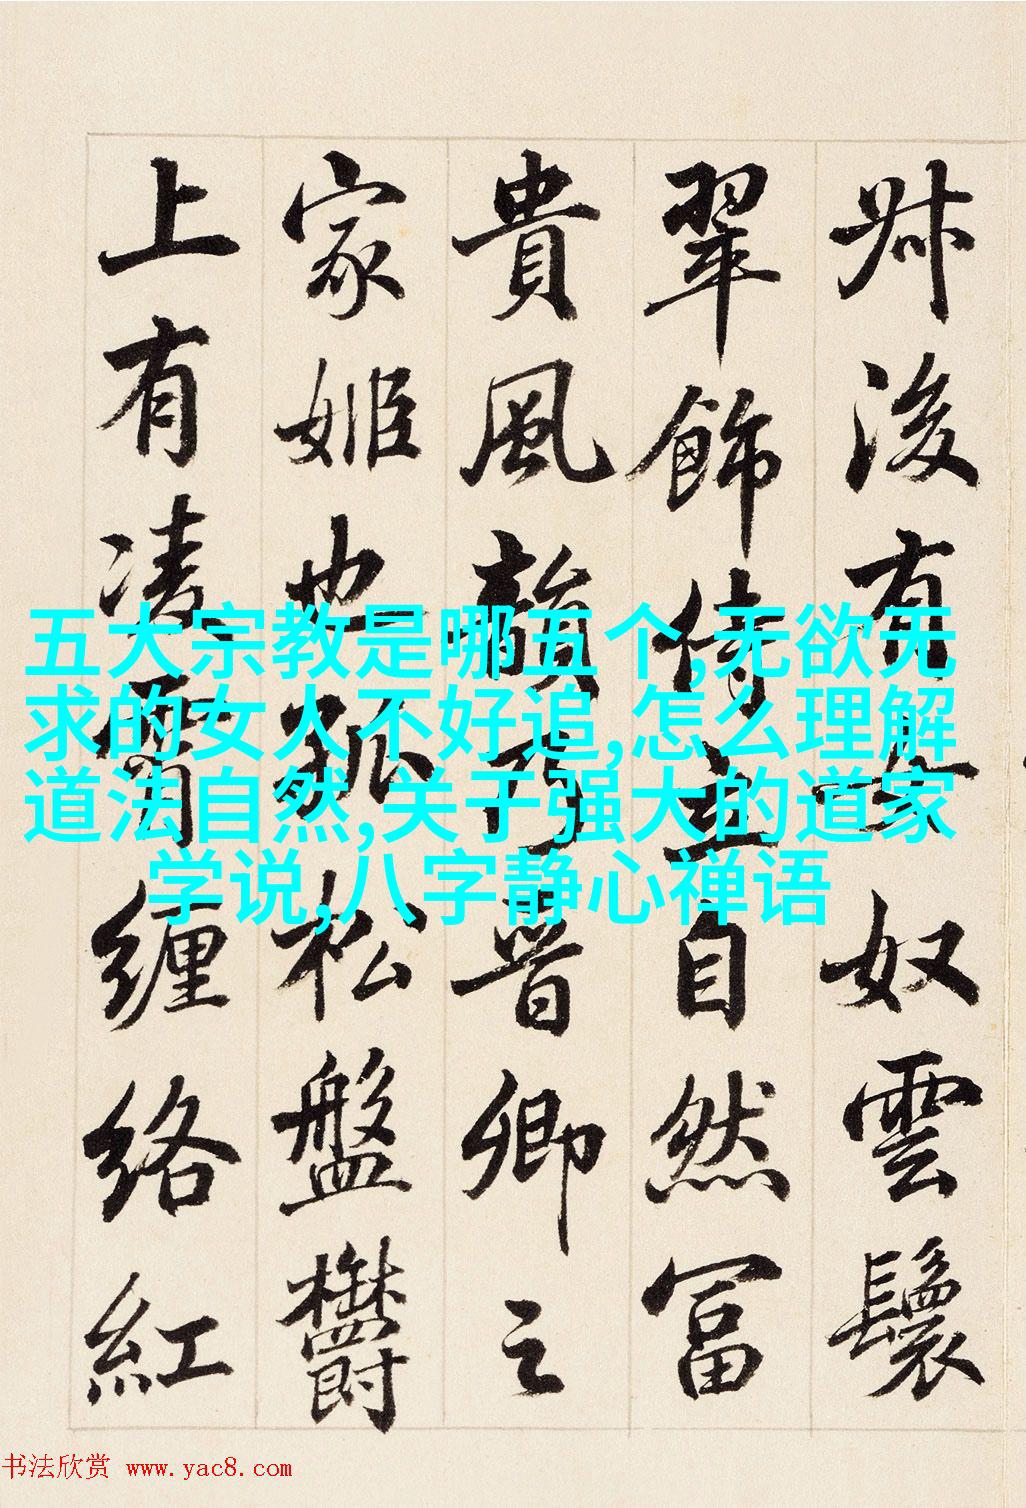 叔後有女奴雲鬟
翠飾侍立自然富
貴風韻乃晉卿之
家姬也孤松盤鬱
上有凌霄纏絡紅
五大宗教是哪五个,无欲无
求的女人不好追,怎么理解
道法自然,关于强大的道家
学说,八字静心禅语
书法欣赏 www.yac8.com